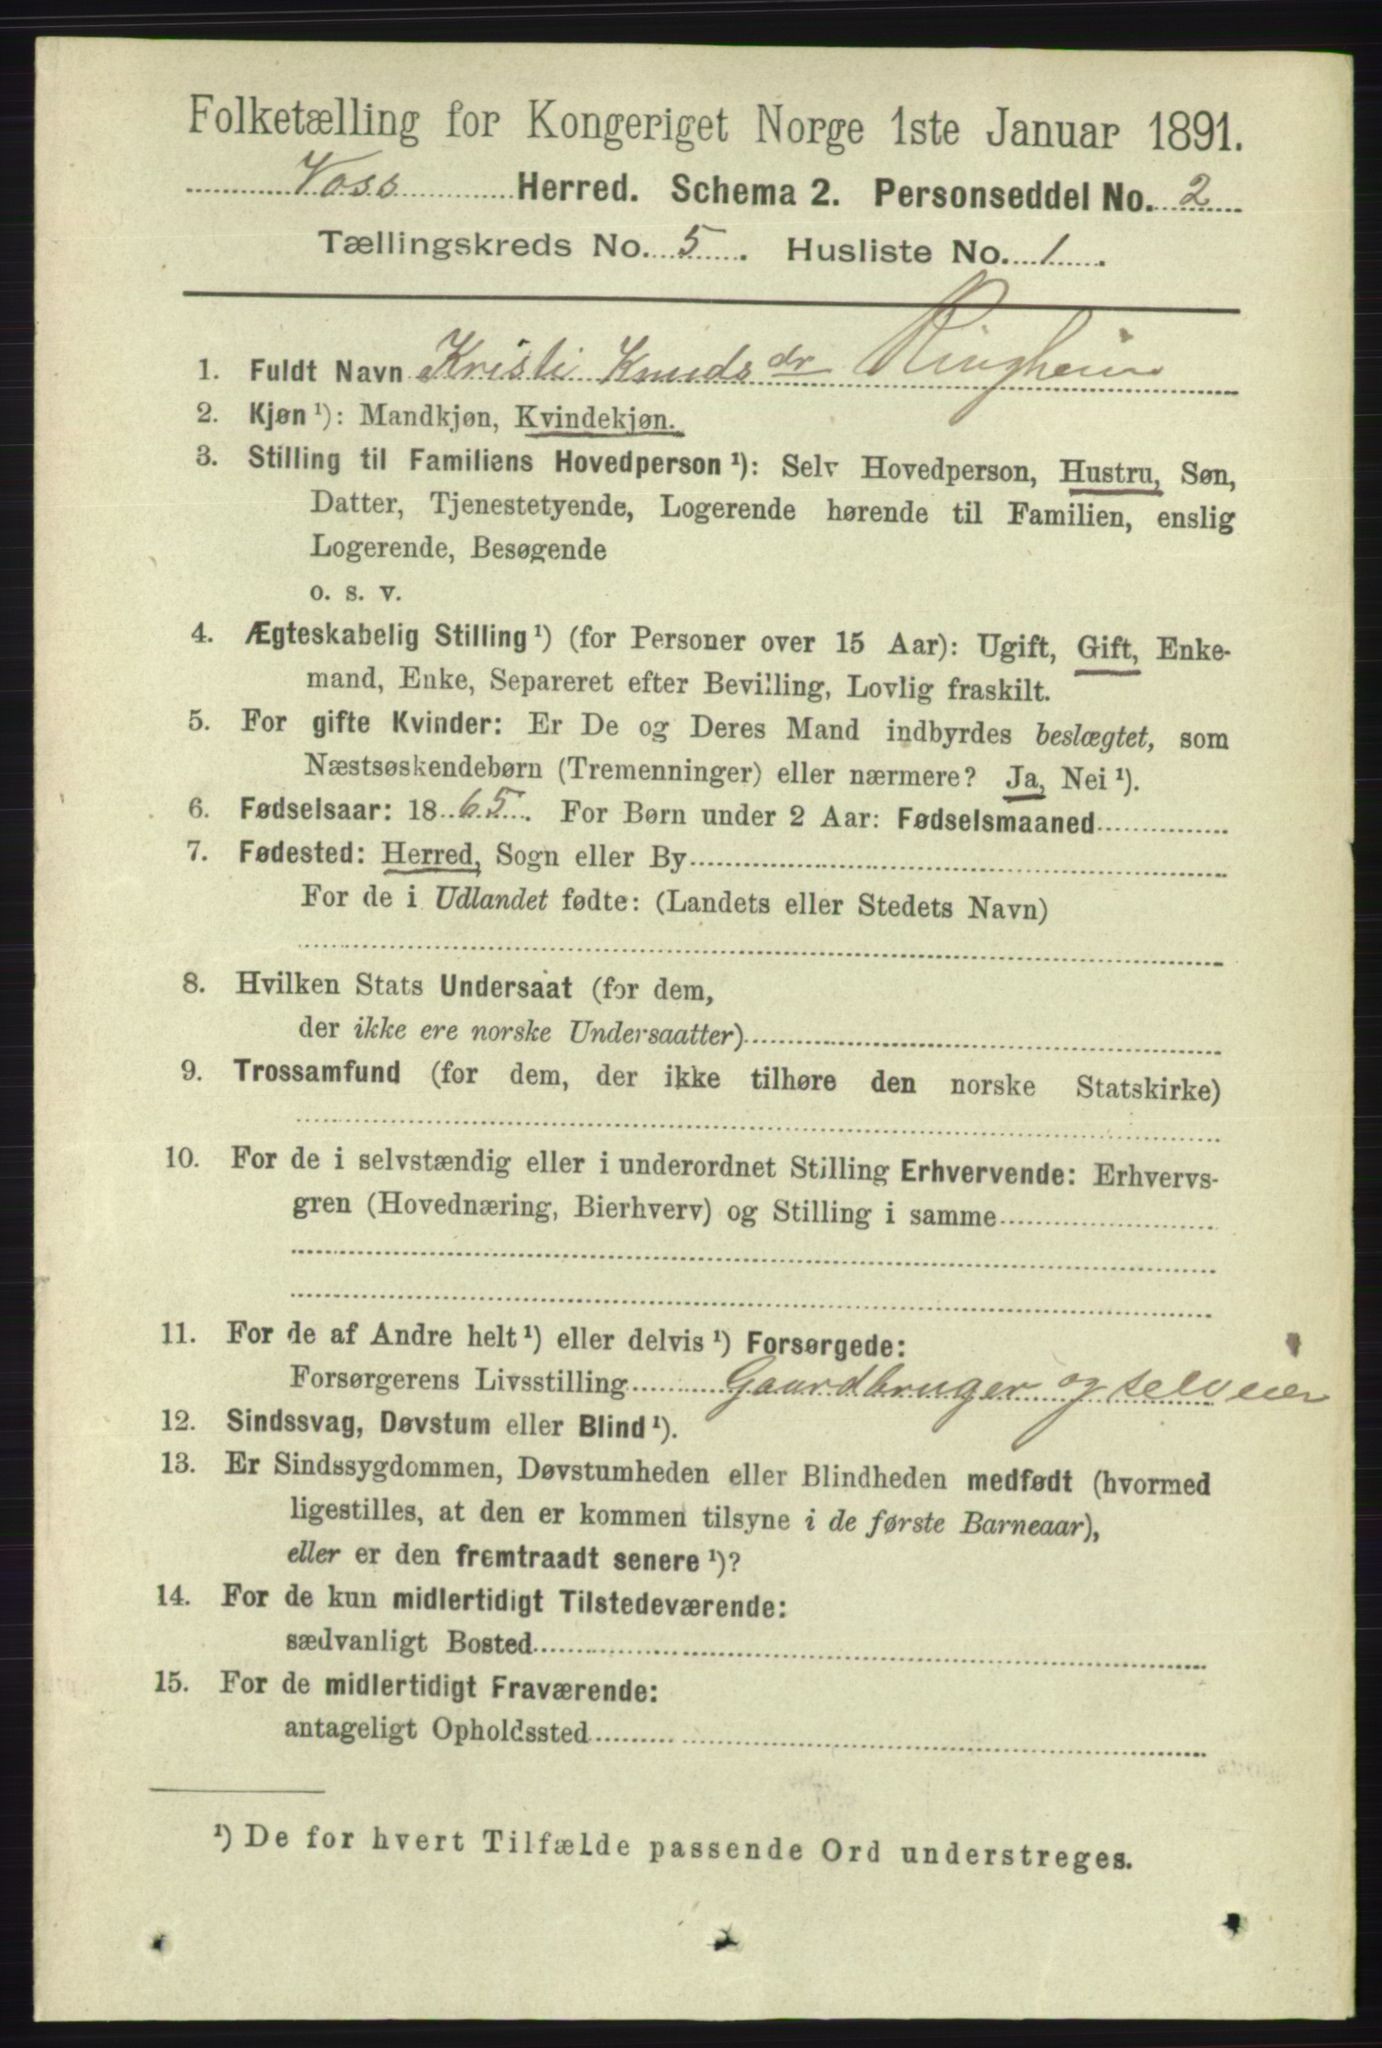 Folketælling for Kongeriget Norge 1ste Januar 1891.
Voss Herred. Schema 2. Personseddel No. 2
Tællingskreds No. 5. Husliste No. 1.
1. Fuldt Navn Kristi Knudsdr Ringheim
2. Kjøn ¹): Mandkjøn, Kvindekjøn.
3. Stilling til Familiens Hovedperson ¹): Selv Hovedperson, Hustru, Søn,
Datter, Tjenestetyende, Logerende hørende til Familien, enslig
Logerende, Besøgende
o. s. v.
4. Ægteskabelig Stilling ¹) (for Personer over 15 Aar): Ugift, Gift, Enke-
mand, Enke, Separeret efter Bevilling, Lovlig fraskilt.
5. For gifte Kvinder: Er De og Deres Mand indbyrdes beslægtet, som
Næstsøskendebørn (Tremenninger) eller nærmere? Ja, Nei ¹).
6. Fødselsaar: 1865. For Børn under 2 Aar: Fødselsmaaned
7. Fødested: Herred, Sogn eller By
For de i Udlandet fødte: (Landets eller Stedets Navn)
8. Hvilken Stats Undersaat (for dem,
der ikke ere norske Undersaatter)
9. Trossamfund (for dem, der ikke tilhøre den norske Statskirke)
10. For de i selvstændig eller i underordnet Stilling Erhvervende: Erhvervs-
gren (Hovednæring, Bierhverv) og Stilling i samme
11. For de af Andre helt ¹) eller delvis ¹) Forsørgede:
Forsørgerens Livsstilling Gaardbruger og selveier
12. Sindssvag, Døvstum eller Blind ¹).
13. Er Sindssygdommen, Døvstumheden eller Blindheden medfødt (hvormed
ligestilles, at den er kommen tilsyne i de første Barneaar),
eller er den fremtraadt senere ¹)?
14. For de kun midlertidigt Tilstedeværende:
sædvanligt Bosted
15. For de midlertidigt Fraværende:
antageligt Opholdssted
¹) De for hvert Tilfælde passende Ord understreges.